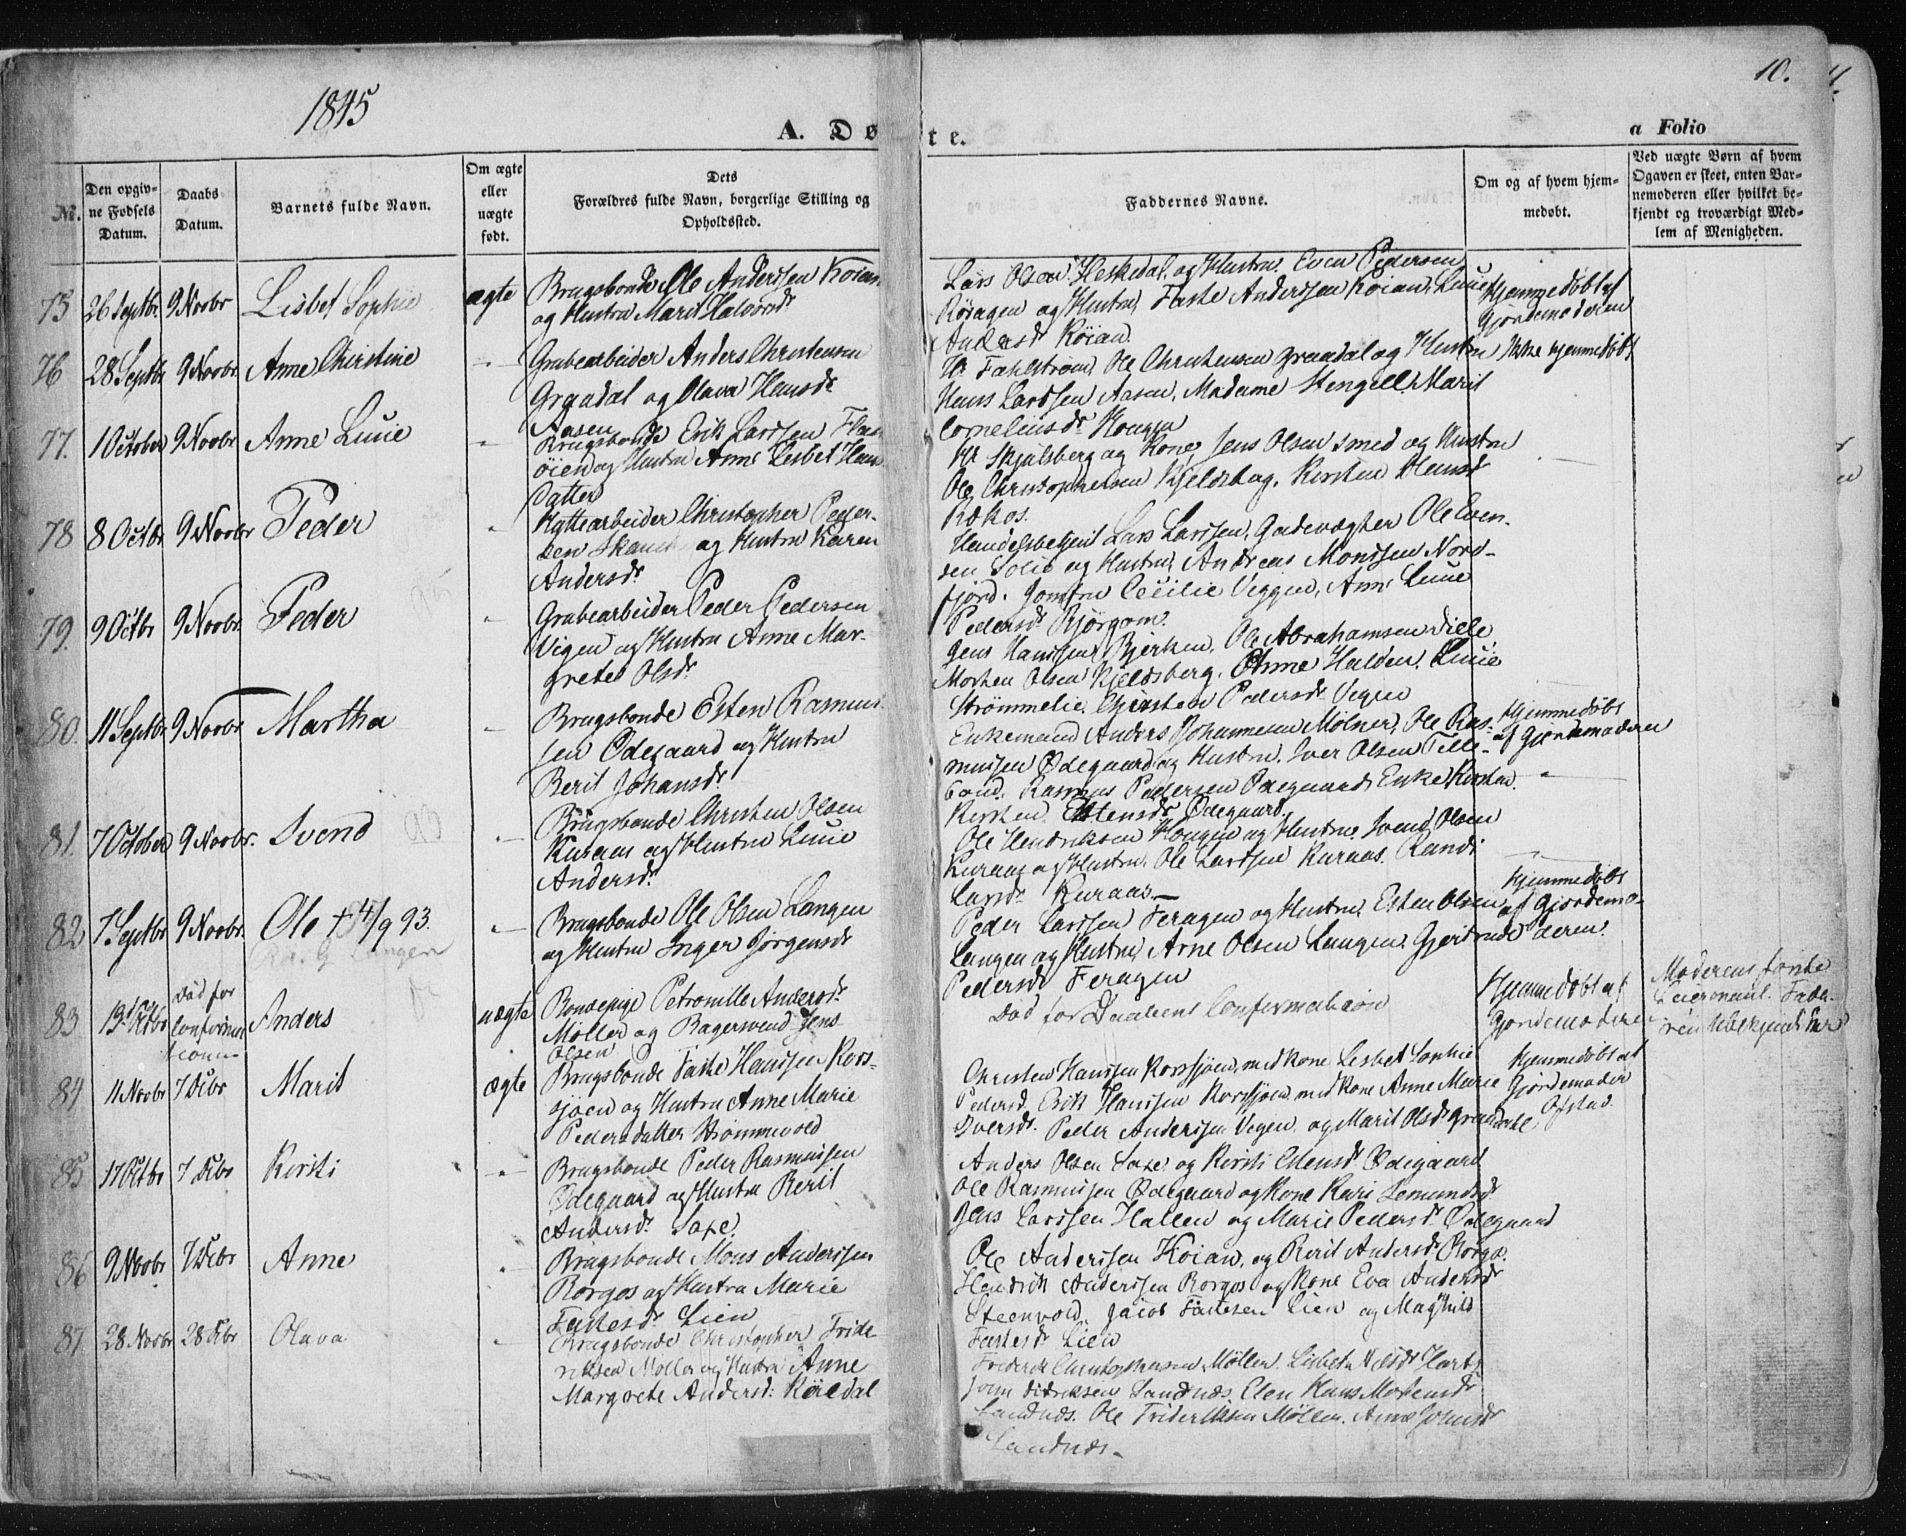 1845
10.
A. Dø
te.
a Folio
№.
Den opgiv-
ne Fødsels
Datum.
Daabs
Datum.
Barnets fulde Navn.
Om ægte
eller
uægte
født.
Dets
Forældres fulde Navn, borgerlige Stilling og
Opholdssted.
Faddernes Navne.
Om og af hvem hjem-
medøbt.
Ved uægte Børn af hvem
Ogaven er skeet, enten Bar-
nemoderen eller hvilket be-
kjendt og troværdigt Med-
lem af Menigheden.
75 26 Septbr. 9 Novbr Lisbet Sophie ægte
Brugsbonde Ole Anderssen Koian
og Hustru Marit Halvorsdr
Lars Olsen Heskedal og Hustru. Even Pedersen
og Hustru, Faste Anderssen Koian, Lucie
Andersdr Koian
Hjemmedøbt af
Gjordemoderen
76 28 Septbr 9 Novbr Anne Christine
Grubearbeider Anders Christensen
Graadal og Olava Hansdr
Aasen
Hr Fahlstrøm, Ole Christensen Graadal og Hustru
Hans Larssen Aasen, Madame Stengell. Marit
Corneliusdr Hougen
Ikke hjemmedøbt
77. 1 October 9 Novbr Anne Lucie
Brugsbonde Erik Larssen
øien og Hustru Anne Lisbet Hans
Datter
Hr Skjulsberg og Kone, Jens Olsen Smed og Hustru
Ole Christophersen Kjeldsberg, Kirsten Olausdr
78 8 Octbr 9 Novbr Peder
Hyttearbeider Christopher Peder-
sen og Hustru Karen
Andersdr
Handelsbetjent Lars Larssen, Gadevægter Ole Even-
sen Solie og Hustru, Andreas Monssen Nord-
fjord. Jomfru Cecilie Veggen, Anne Lucie
Pedersdr
79. 9 Octbr 9 Novbr Peder
Grubearbeider Peder Pedersen
Vigen og Hustru Anne Mar-
grete Olsdr
Jens Hanssen Bjerken, Ole Abrahamsen
Morten Olsen Kjeldsberg. Anne Halden, Lucie
Strømmelie, Kirsten Pedersdr Vigen
80. 11 Septbr 9 Novbr Martha
Brugsbonde Esten Rasmus
sen Ødegaard og Hustru
Berit Johansdr
Enkemand Anders Johannesen Mølner, Ole Ras-
mussen Ødegaard og Hustru. Iver Olsen
Rasmus Pedersen Ødegaard, Enke Kirsten
Kirsten Estensdr Ødegaard.
Hjemmedøbt
af Gjordemoderen
81. 7 October 9 Novbr. Svend
Brugsbonde Christen Olsen
Kuraas og Hustru Lucie
Andersdr
Ole Hendriksen Hougen og Hustru. Svend Olsen
Kuraas og Hustru, Ole Larssen Kuraas. Randi
Larsdr Kuraas
82 7 Septbr 9 Novbr. Ole † 4/9 93.
Langen
Brugsbonde Ole Olsen Langen
og Hustru Inger Jørgensdr
Peder Larssen Feragen og Hustru, Esten Olsen
Langen og Hustru, Arne Olsen Langen. Gjertrude
Pedersdr Feragen
Hjemmedøbt
af Gjordemo-
deren.
83 13d Octbr Død før Confirma-tionen Anders uægte
Bondepige Petronille Andersdr
Møller og Bagersvend Jens
Olsen
Død før Daabens Confirmation
Hjemmedøbt af
Gjordemoderen
Moderens første
Leiermaal. Fade-
ren
84 11 Novbr 7 Dcbr Marit ægte
Brugsbonde Faste Hanssen Kors-
sjøen og Hustru Anne Marie
Pedersdatter Strømmevold
Christen Hanssen Korssjøen, med Kone Lisbet Sophie
Pedersd. Erik Hanssen Korssjøen med Kone Anne Marie
Iversdr. Peder Anderssen Vigen og Marit Olsdr Graadal
Hjemmedøbt af
Gjordemoder
Ofstad.
85 17 Octbr 7 Dcbr Kirsti
Brugsbonde Peder Rasmussen
Ødegaard og Hustru Berit
Andersdr Saxe.
Anders Olsen Saxe og Kirsti Estensdr Ødegaard
Ole Rasmussen Ødegaard og Kone Kari Semundsdr
Jens Larssen Hallen og Marie Pedersdr Ødegaard
86 9 Novbr 7 Dcbr Anne
Brugsbonde Mons Anderssen
Borgos og Hustru Marie
Fastesdr Lien
Ole Anderssen Koian, og Berit Andersdr Borgo.
Hendrik Anderssen Borgos og Kone Eva Andersdr
Steenvold, Jacob Fastesen Lien og Maghild
Fastesdr Lien
87. 28 Novbr 28 Dcbr Olava
Brugsbonde Christopher Fride-
riksen Møller og Hustru Anne
Margrete Andersd.
Frederik Christophersen Møller. Lisbet
John Didriksen Sandnæs, Elen
Sandnæs. Ole Frideriksen Møller. Anne Johnsdr
Sandnæs